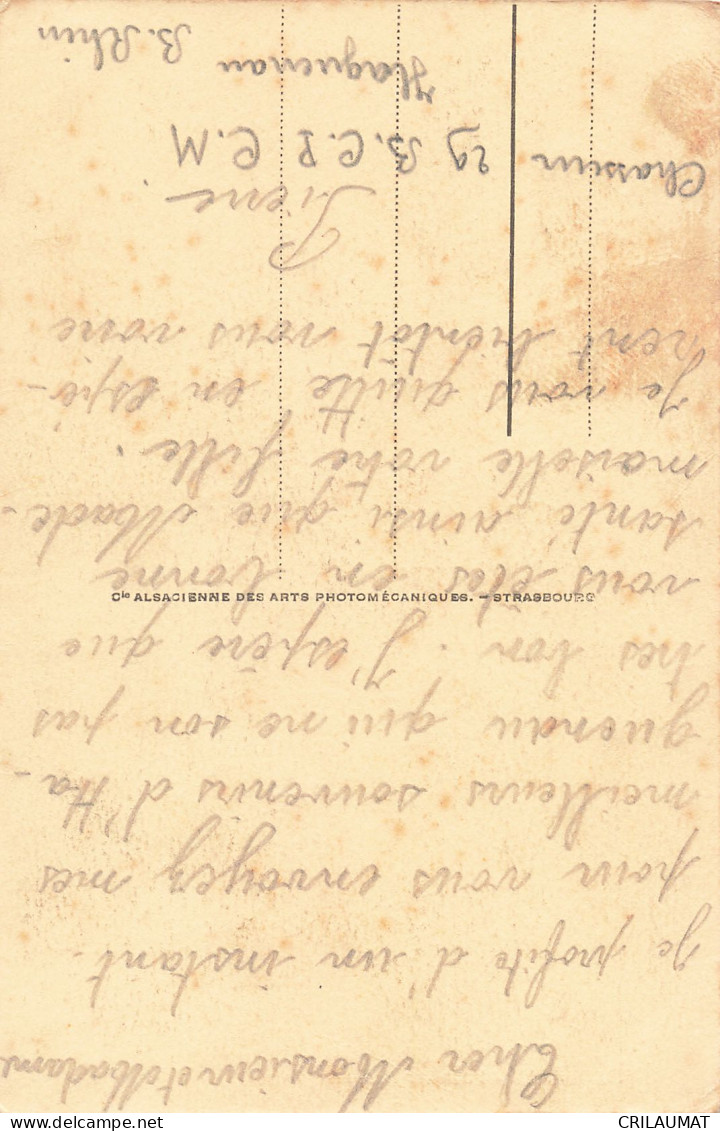 Cher Monsieur et Madame
Je profite d'un instant
pour vous envoyez mes
meilleurs souvenirs d'Ha-
guenau qui ne son pas
tres bon. J'espère que
vous êtes en bonne
santé ainsi que Made-
moiselle votre fille.
Je vous quitte en espé-
rent bientôt vous voire
Pierre
Chasseur 29 B.C.P C.M
Haguenau
B. Rhin
Cie ALSACIENNE DES ARTS PHOTOMÉCANIQUES. - STRASBOURG
CRILAUMAT